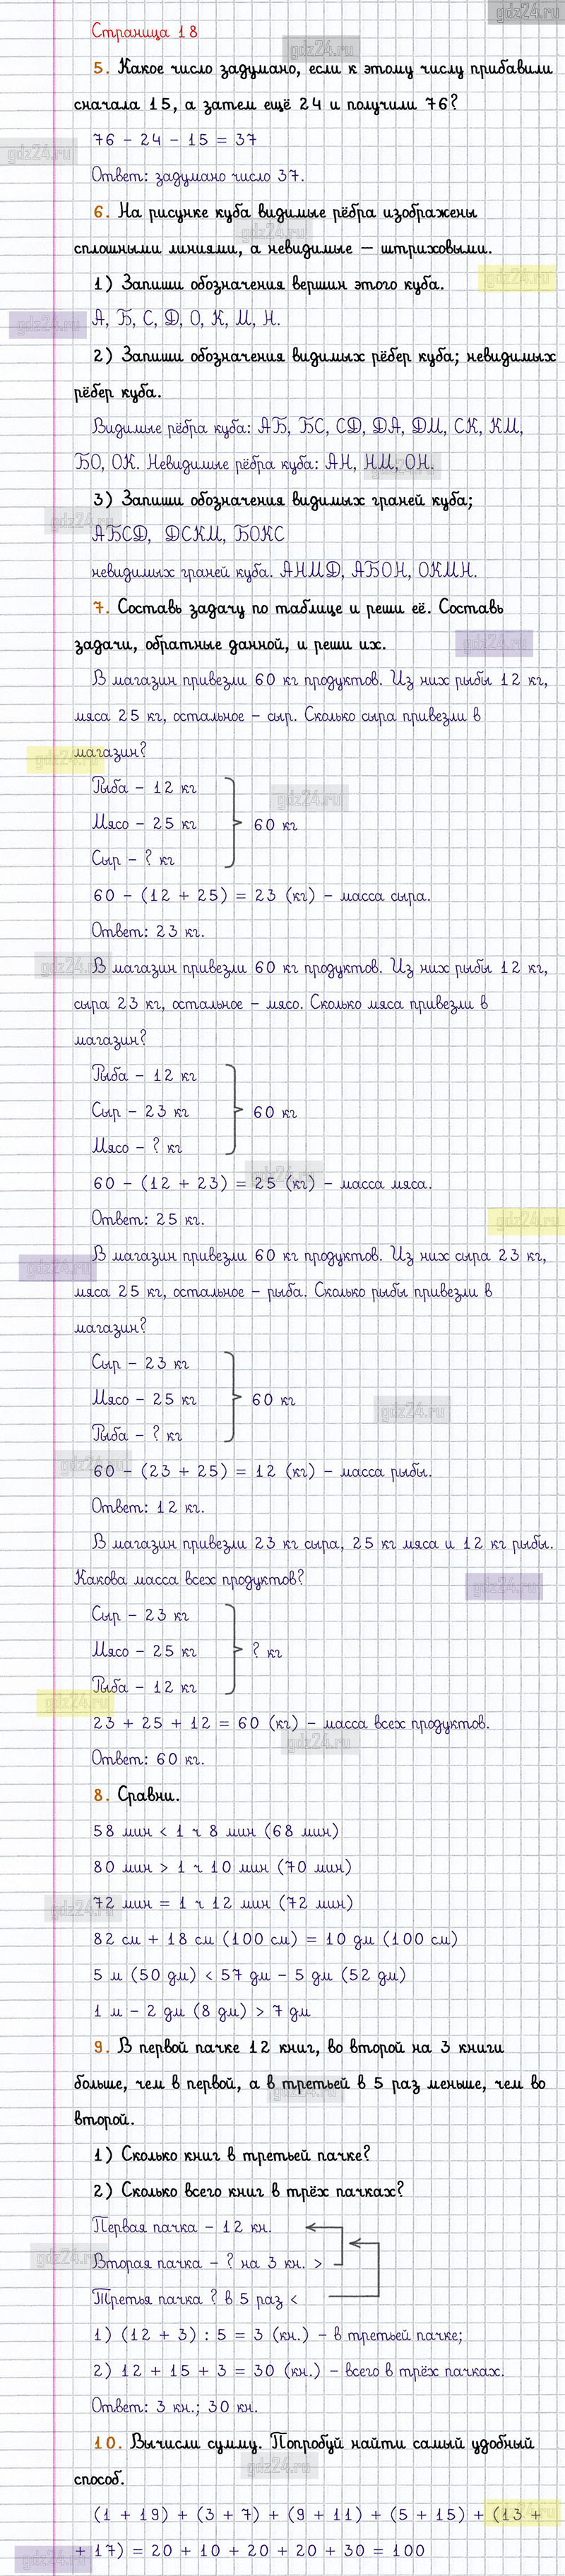 gdz24.ru
Страница 18
gdz24.ru
5. Какое число задумано, если к этому числу прибавили
сначала 15, а затем ещё 24 и получили 76?
76 - 24 - 15 = 37
gdz24.ru
Ответ: задумано число 37.
6. На рисунке куба видимые рёбра изображены
gdz24.ru
сплошными линиями, а невидимые — штриховыми.
1) Запиши обозначения вершин этого куба.
gdz24.ru
А, Б, С, Д, О, К, М, Н.
gdz24.ru
2) Запиши обозначения видимых рёбер куба; невидимых
рёбер куба.
Видимые рёбра куба: АБ, БС, СД, ДА, ДМ, СК, КМ,
БО, ОК. Невидимые рёбра куба: АН, НМ, ОН.
gdz24.ru
3) Запиши обозначения видимых граней куба;
gdz24.ru
АБСД, ДСКМ, БОКС
невидимых граней куба. АНМД, АБОН, ОКМН.
7. Составь задачу по таблице и реши её. Составь
задачи, обратные данной, и реши их.
gdz24.ru
В магазин привезли 60 кг продуктов. Из них рыбы 12 кг,
мяса 25 кг, остальное - сыр. Сколько сыра привезли в
магазин?
gdz24.ru
Рыба - 12 кг
gdz24.ru
Мясо - 25 кг 60 кг
Сыр - ? кг
60 - (12 + 25) = 23 (кг) - масса сыра.
Ответ: 23 кг.
gdz24.ru
В магазин привезли 60 кг продуктов. Из них рыбы 12 кг,
сыра 23 кг, остальное - мясо. Сколько мяса привезли в
магазин?
Рыба - 12 кг
Сыр - 23 кг 60 кг
Мясо - ? кг
gdz24.ru
60 - (12 + 23) = 25 (кг) - масса мяса.
Ответ: 25 кг.
gdz24.ru
В магазин привезли 60 кг продуктов. Из них сыра 23 кг,
gdz24.ru
мяса 25 кг, остальное - рыба. Сколько рыбы привезли в
магазин?
Сыр - 23 кг
Мясо - 25 кг 60 кг
gdz24.ru
Рыба - ? кг
gdz24.ru
60 - (23 + 25) = 12 (кг) - масса рыбы.
Ответ: 12 кг.
В магазин привезли 23 кг сыра, 25 кг мяса и 12 кг рыбы.
Какова масса всех продуктов?
gdz24.ru
Сыр - 23 кг
Мясо - 25 кг ? кг
Рыба - 12 кг
gdz24.ru
23 + 25 + 12 = 60 (кг) - масса всех продуктов.
gdz24.ru
Ответ: 60 кг.
8. Сравни.
58 мин < 1 ч 8 мин (68 мин)
80 мин > 1 ч 10 мин (70 мин)
72 мин = 1 ч 12 мин (72 мин)
gdz24.ru
82 см + 18 см (100 см) = 10 дм (100 см)
5 м (50 дм) < 57 дм - 5 дм (52 дм)
1 м - 2 дм (8 дм) > 7 дм
9. В первой пачке 12 книг, во второй на 3 книги
больше, чем в первой, а в третьей в 5 раз меньше, чем во
gdz24.ru
второй.
1) Сколько книг в третьей пачке?
2) Сколько всего книг в трёх пачках?
Первая пачка - 12 кн.
gdz24.ru
Вторая пачка - ? на 3 кн. >
Третья пачка ? в 5 раз <
1) (12 + 3) : 5 = 3 (кн.) - в третьей пачке;
2) 12 + 15 + 3 = 30 (кн.) - всего в трёх пачках.
Ответ: 3 кн.; 30 кн.
10. Вычисли сумму. Попробуй найти самый удобный
gdz24.ru
способ.
(1 + 19) + (3 + 7) + (9 + 11) + (5 + 15) + (13 +
gdz24.ru
+ 17) = 20 + 10 + 20 + 20 + 30 = 100
gdz24.ru